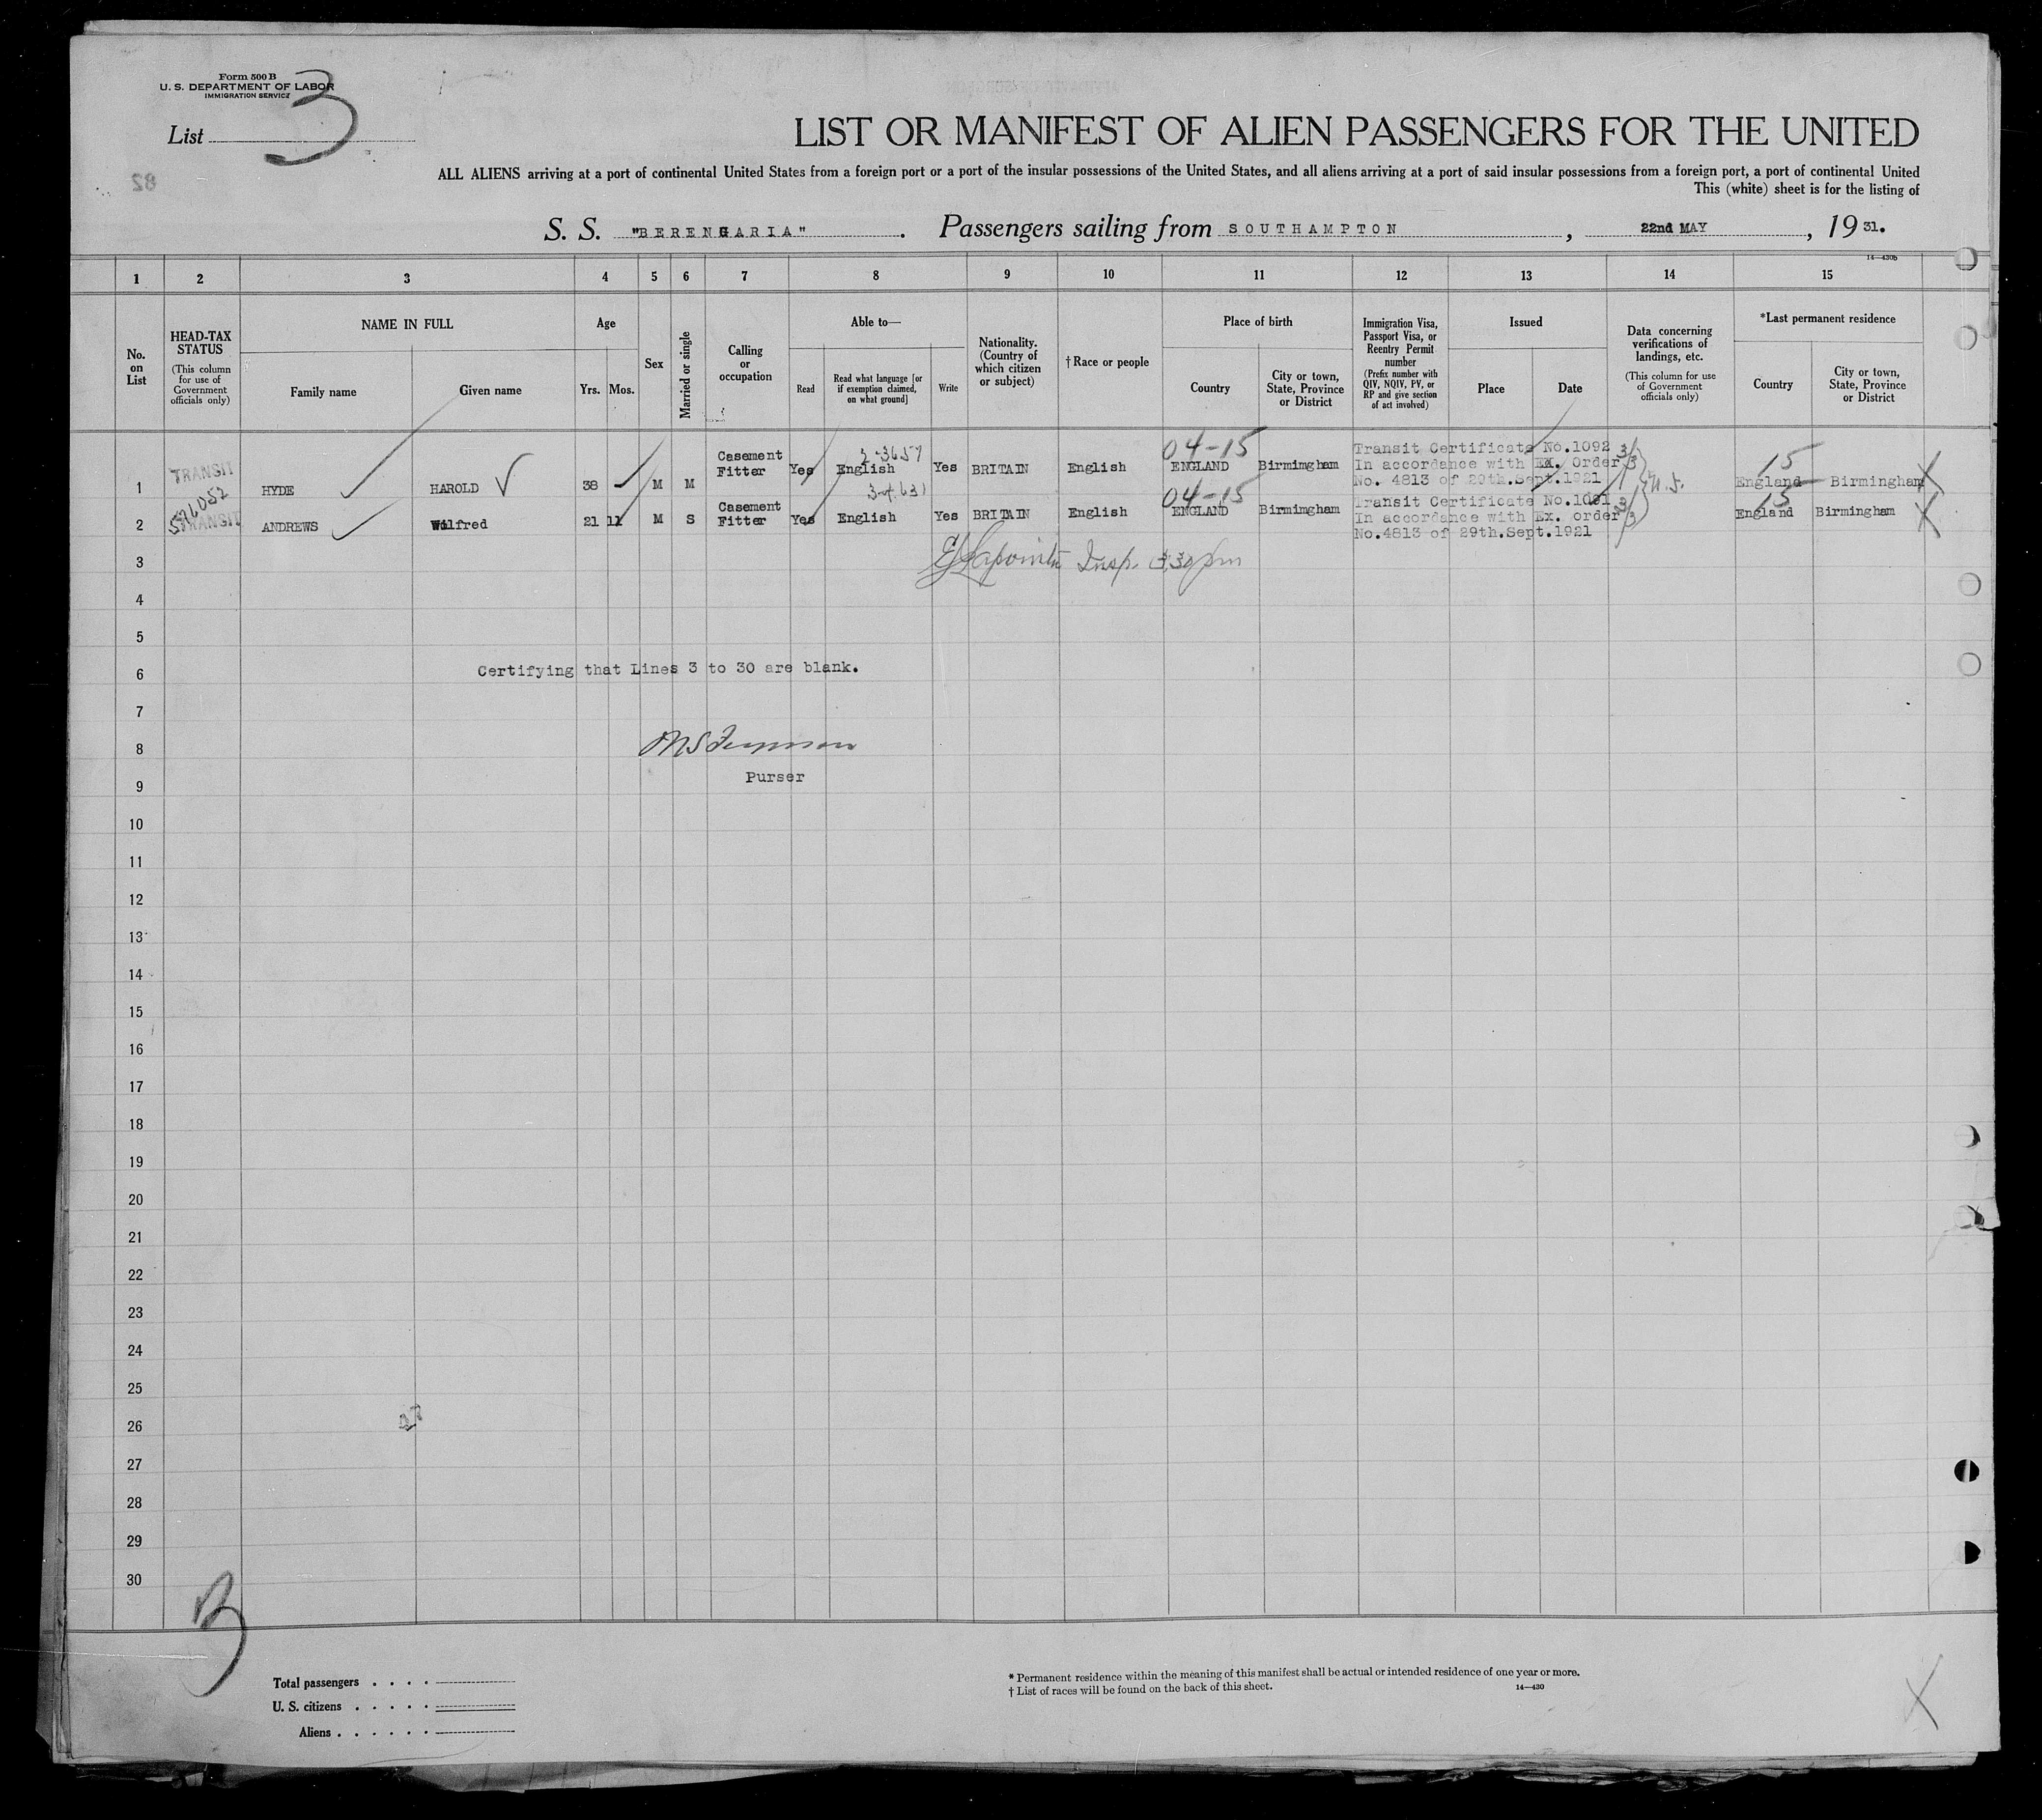 Form 500 B
U. S. DEPARTMENT OF LABOR
IMMIGRATION SERVICE
List 3
82
LIST OR MANIFEST OF ALIEN PASSENGERS FOR THE UNITED
ALL ALIENS arriving at a port of continental United States from a foreign port or a port of the insular possessions of the United States, and all aliens arriving at a port of said insular possessions from a foreign port, a port of continental United
This (white) sheet is for the listing of
S. S. "BERENGARIA". Passengers sailing from SOUTHAMPTON, 22nd MAY, 1931.
14—430b
1 2 3 4 5 6 7 8 9 10 11 12 13 14 15
No. on List
HEAD-TAX STATUS (This column for use of Government officials only)
NAME IN FULL
Family name
Given name
Age
Yrs. Mos.
Sex
Married or single
Calling or occupation
Able to—
Read
Read what language [or if exemption claimed, on what ground]
Write
Nationality. (Country of which citizen or subject)
†Race or people
Place of birth
Country
City or town, State, Province or District
Immigration Visa, Passport Visa, or Reentry Permit number (Prefix number with QIV, NQIV, PV, or RP and give section of act involved)
Issued
Place
Date
Data concerning verifications of landings, etc. (This column for use of Government officials only)
*Last permanent residence
Country
City or town, State, Province or District
1 TRANSIT HYDE HAROLD 38 M M Casement Fitter Yes English Yes BRITAIN English 04-15 ENGLAND Birmimgham Transit Certificate No.1092 In accordance with EX. Order No. 4813 of 29th.Sept.1921 15 England Birmingham
2 TRANSIT ANDREWS Wilfred 21 11 M S Casement Fitter Yes English Yes BRITAIN English 04-15 ENGLAND Birmimgham Transit Certificate No.1091 In accordance with Ex. order No.4813 of 29th.Sept.1921 15 England Birmingham
3 Insp. 3.30 pm
4
5
6 Certifying that Lines 3 to 30 are blank.
7
8
9 Purser
10
11
12
13
14
15
16
17
18
19
20
21
22
23
24
25
26
27
28
29
30
Total passengers
U. S. citizens
Aliens
* Permanent residence within the meaning of this manifest shall be actual or intended residence of one year or more.
† List of races will be found on the back of this sheet.
14—430